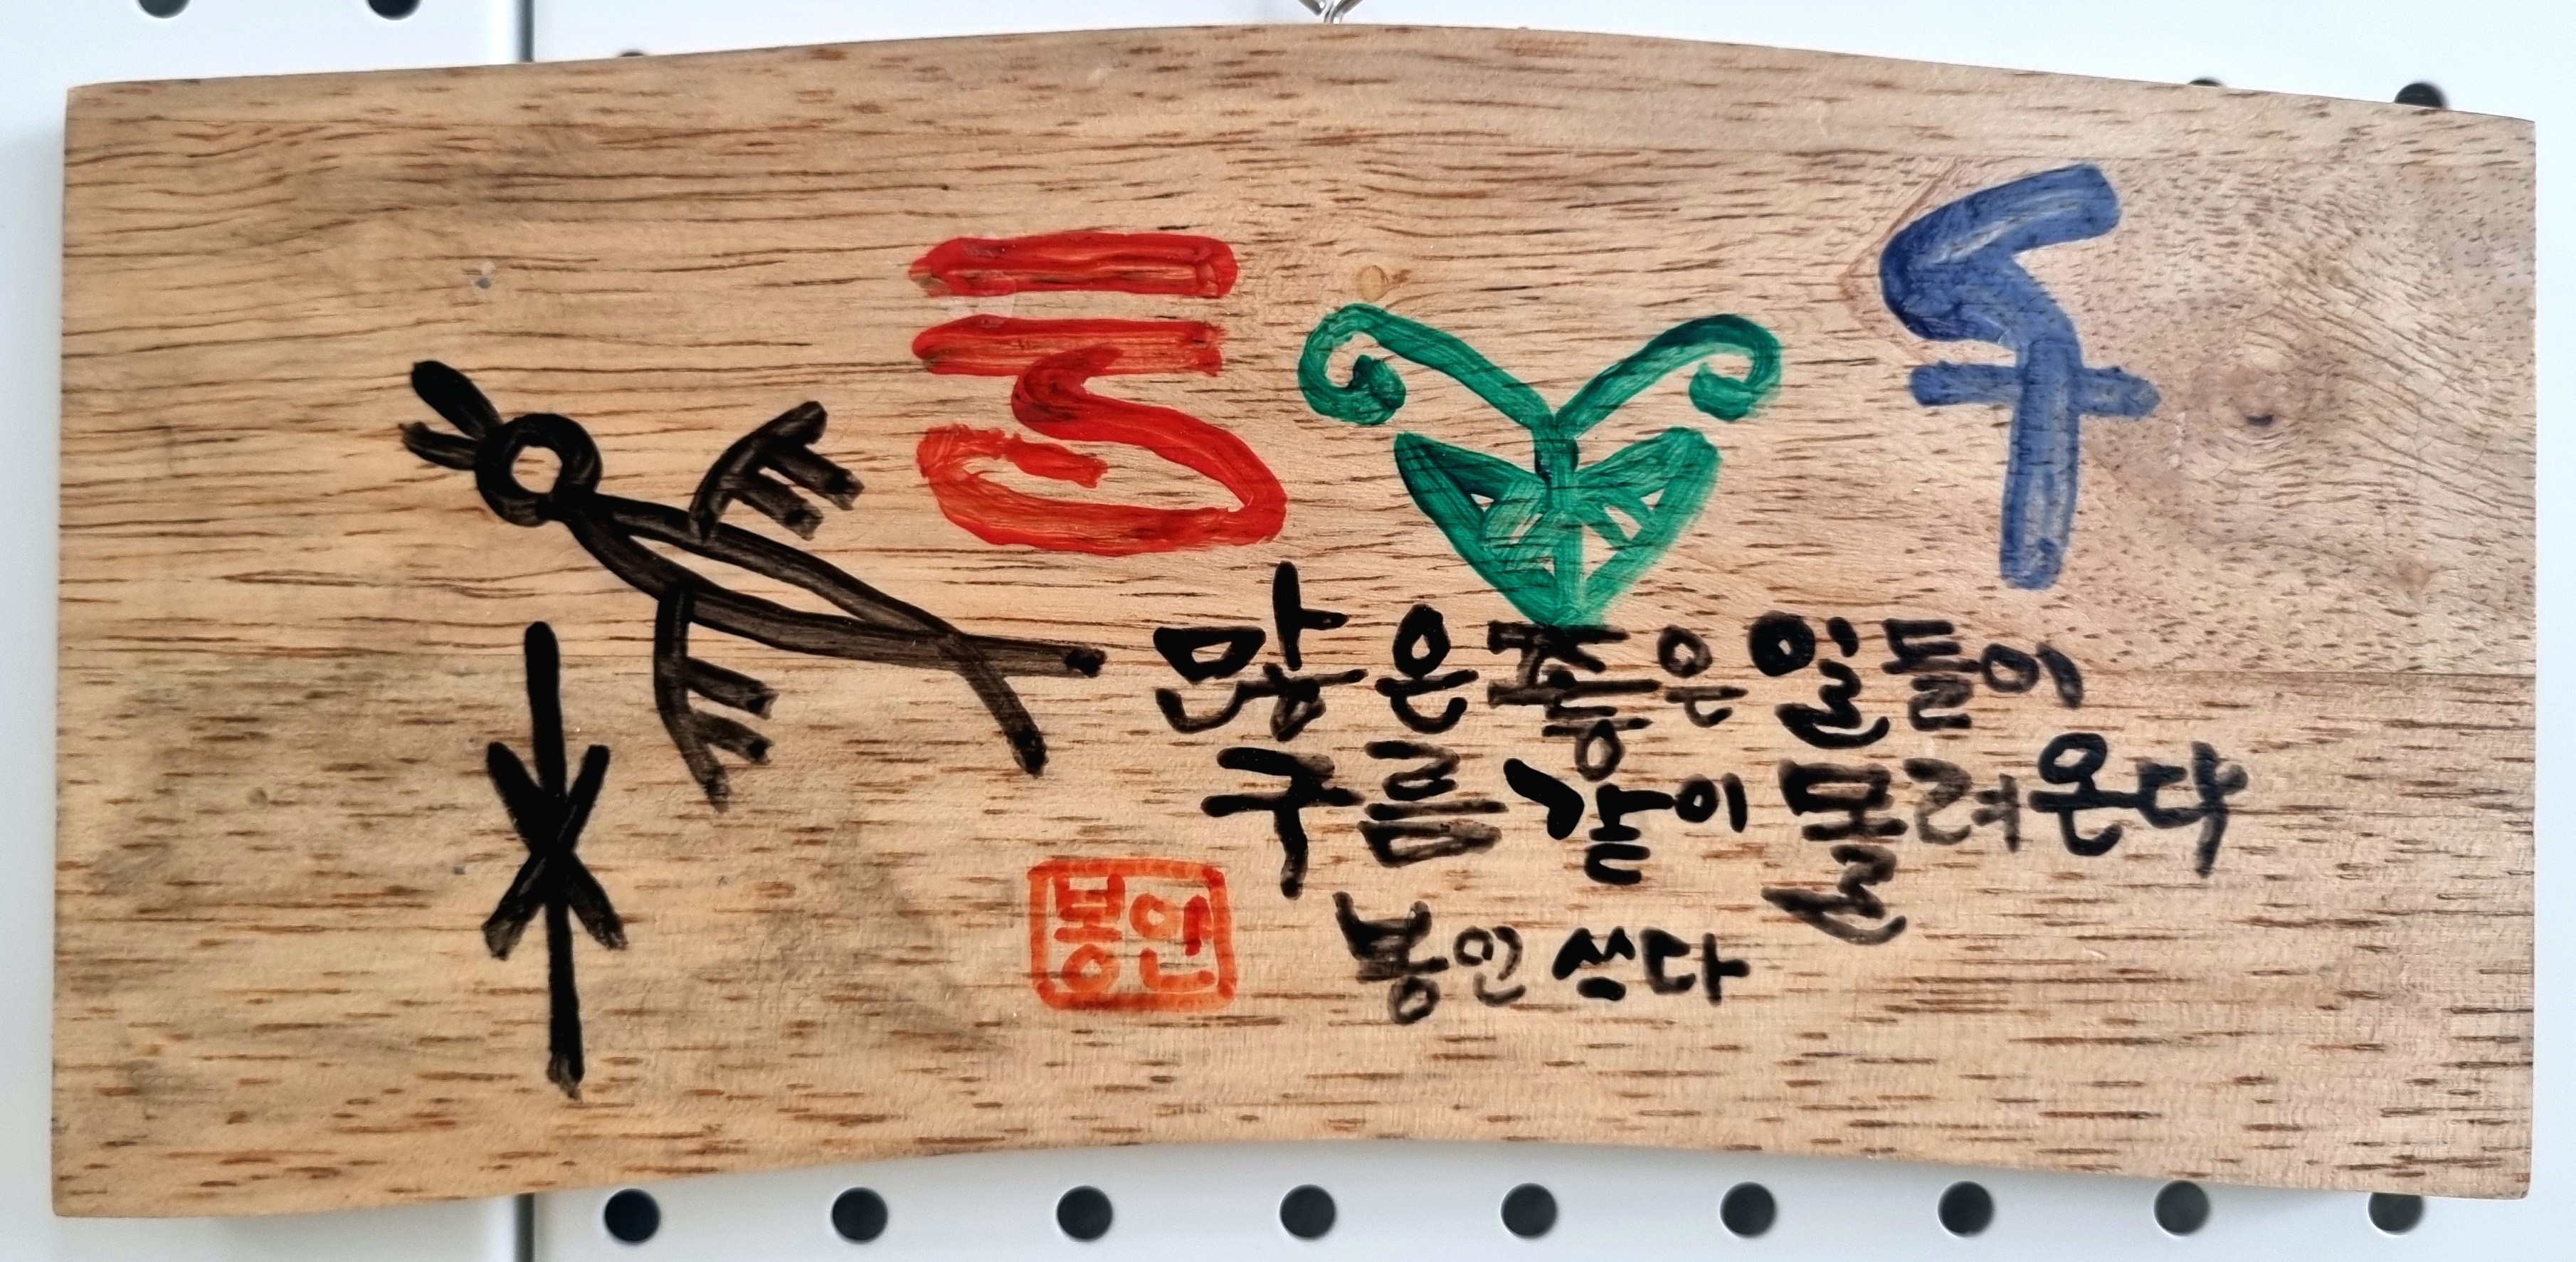 많은 좋은 일들이
구름같이 몰려온다
봉인 쓰다
봉인